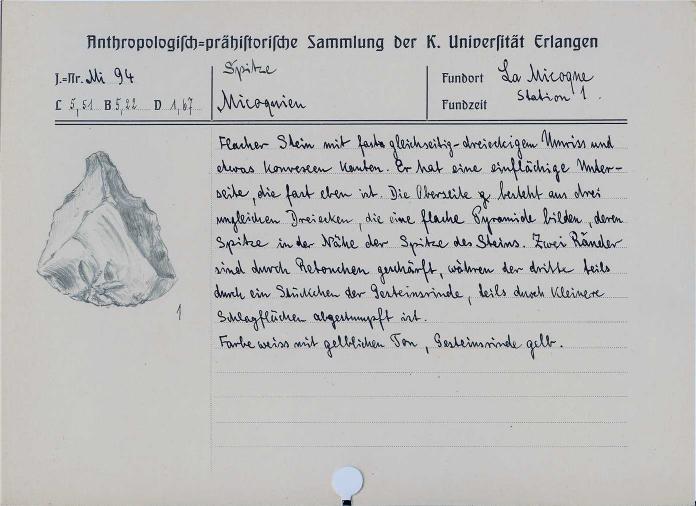 Anthropologisch=prähistorische Sammlung der K. Universität Erlangen
J.=Nr. Mi 94
L 5,51 B 5,22 D 1,67
Spitze
Micoquien
Fundort La Micoque
Station 1.
Fundzeit
Flacher Stein mit fast gleichseitig-dreieckigem Umriss und
etwas konvexen Kanten. Er hat eine einflächige Unter-
seite, die fast eben ist. Die Oberseite besteht aus drei
ungleichen Dreiecken, die eine flache Pyramide bilden, deren
Spitze in der Nähe der Spitze des Steins. Zwei Ränder
sind durch Retouchen geschärft, währen der dritte teils
durch ein Stückchen der Gesteinsrinde, teils durch kleinere
Schlagflächen abgestumpft ist.
Farbe weiss mit gelblichen Ton, Gesteinsrinde gelb.
1